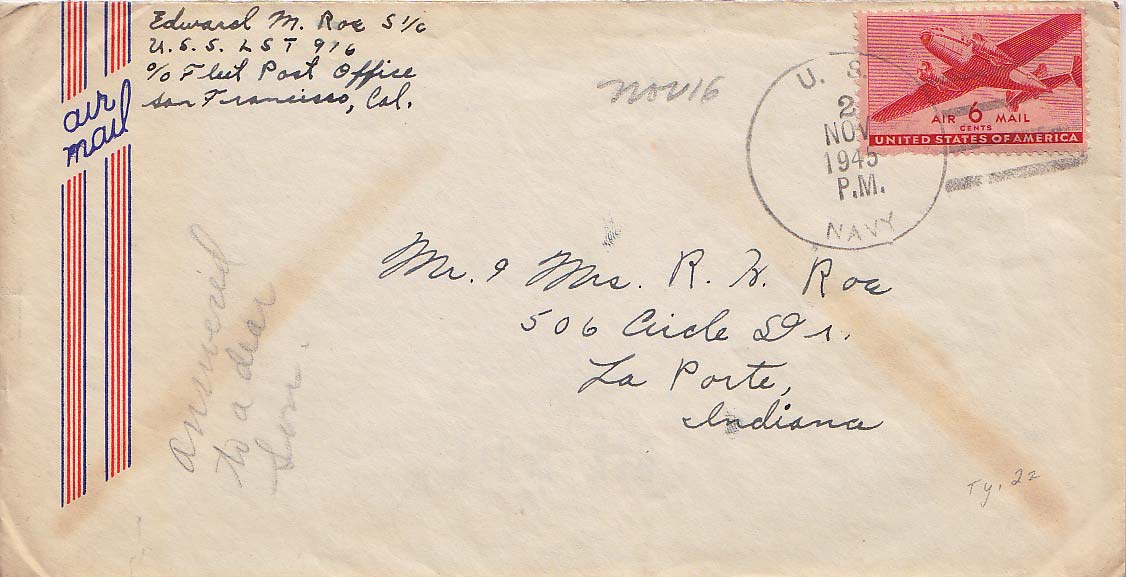 Edward M. Roe S 1/c
U.S.S. LST 916
c/o Fleet Post Office
San Francisco, Cal.
air
mail
Nov 16
U. S.
2
NOV
1945
P.M.
NAVY
AIR 6 MAIL
CENTS
UNITED STATES OF AMERICA
Mr. & Mrs. R. W. Roe
506 Circle Dr.
La Porte,
Indiana
answered
to a dear
Son.
Ty. 2z